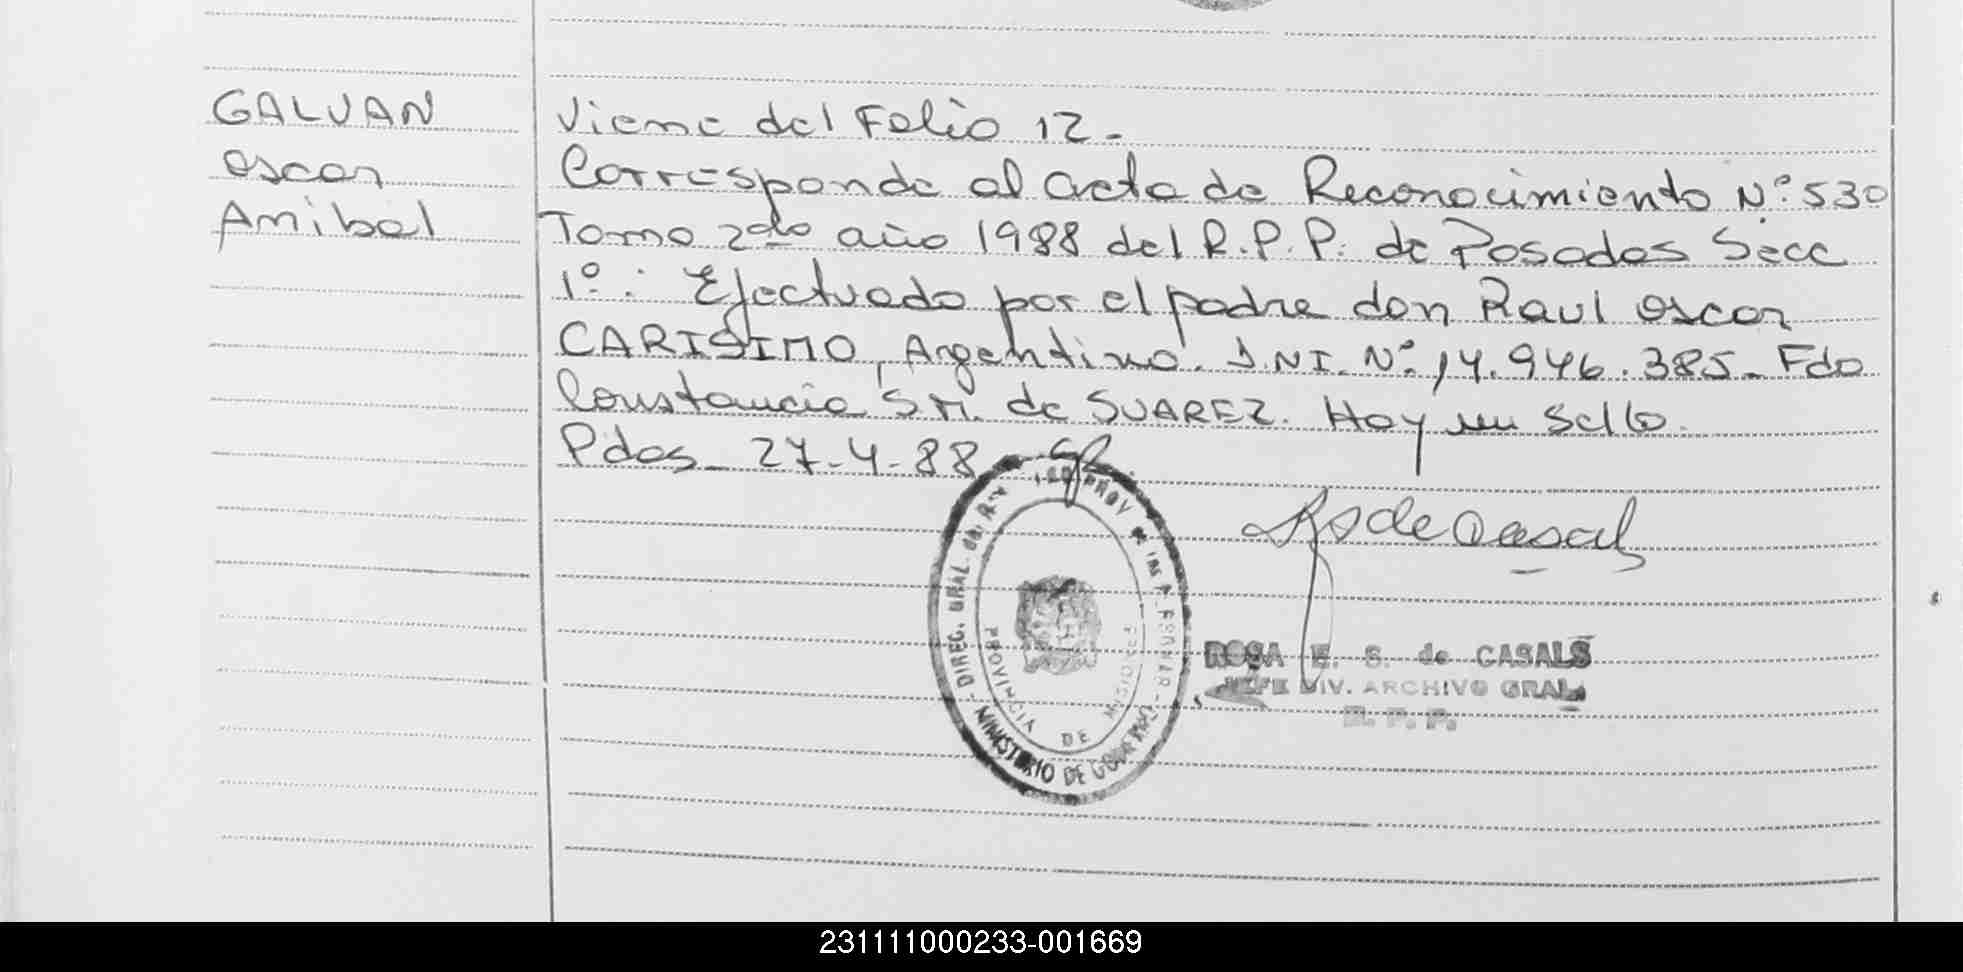 GALVAN
Oscar
Anibal
Viene del Folio 12.
Corresponde al acta de Reconocimiento N° 530
Tomo 2do año 1988 del R.P.P. de Posadas Secc
1°: Efectuado por el padre don Raul Oscar
CARISIMO, Argentino. D.N.I. N° 14.946.385. Fdo
Constancia S M. de SUAREZ. Hay un Sello.
Pdas 27-4-88
DIREC. GRAL. del
PROV
MINISTERIO DE GOBIERNO
PROVINCIA DE MISIONES
ROSA E. S. de CASALS
JEFE DIV. ARCHIVO GRAL.
R. P. P.
231111000233-001669